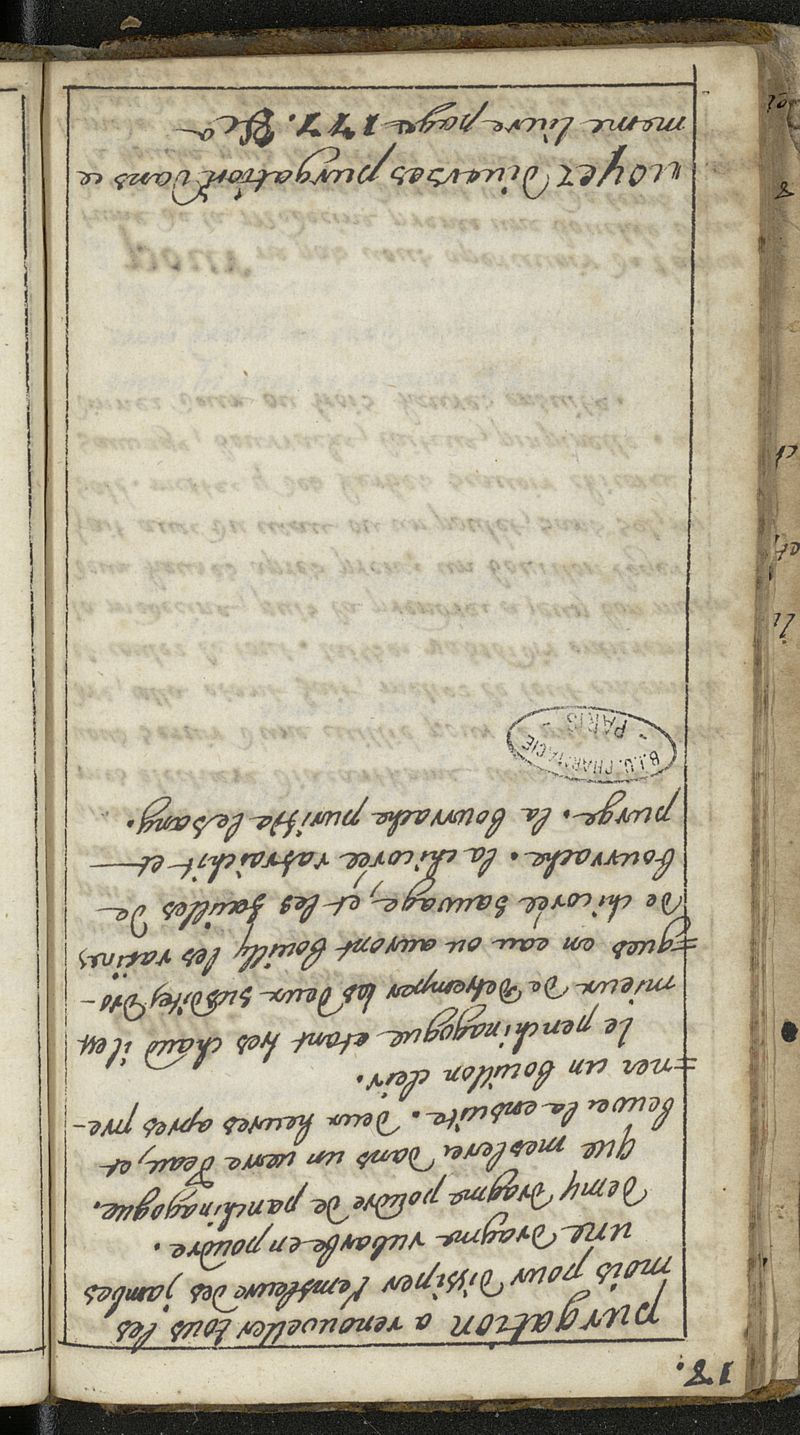 18.
purgation a renouveller tous les
mois pour dissiper l'emsleure des jambes
une dragme rubarbe en poudre.
demy dragme poudre de panchinagogue.
que meslerer dans un verre deau, et
beuver la ensuite. deux heures apres pre-
=ner un bouillon cleir.
le penchinagogue etant tres chaud il est
mieux de detremper les deux susdites dro-
=gues en eau ou auront bouilly les rasines
de chicorée sauvage, et les feuilles de
bourrache. la chicorée rafraichit et
purge. la bourrache purifie le sang.
B.I.U. PHARMACIE
- PARIS -
voyez diverses purgation dans ce
meme livre page 177. &c